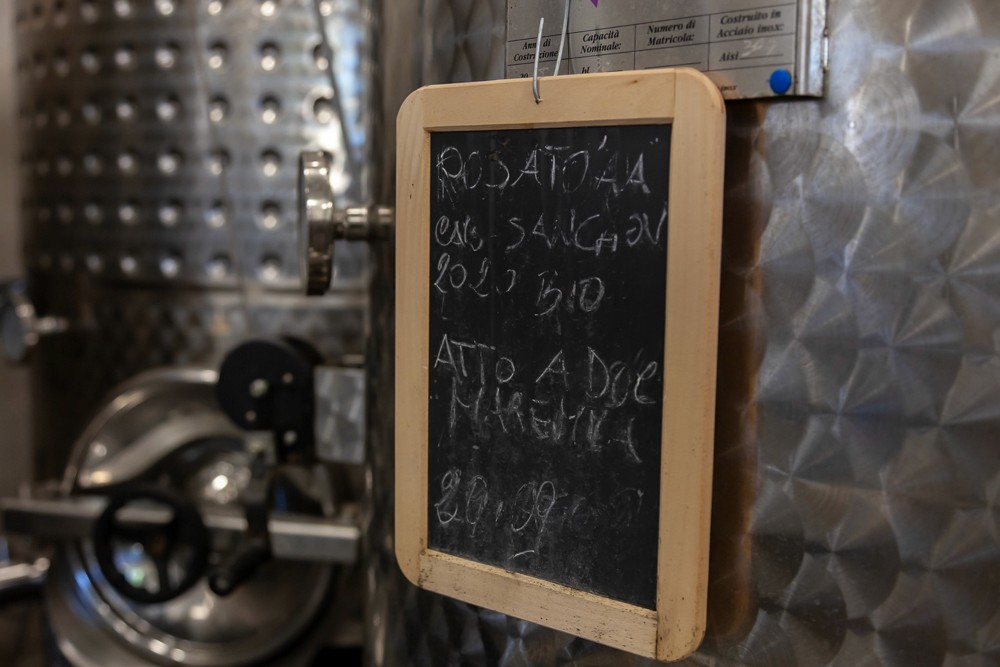 Anno di Costruzione
Capacità Nominale:
Numero di Matricola:
Costruito in Acciaio inox:
20
hl
Aisi 304
ROSATO
SANGIOV
2020 BIO
ATTO A DOC
MAREMMA